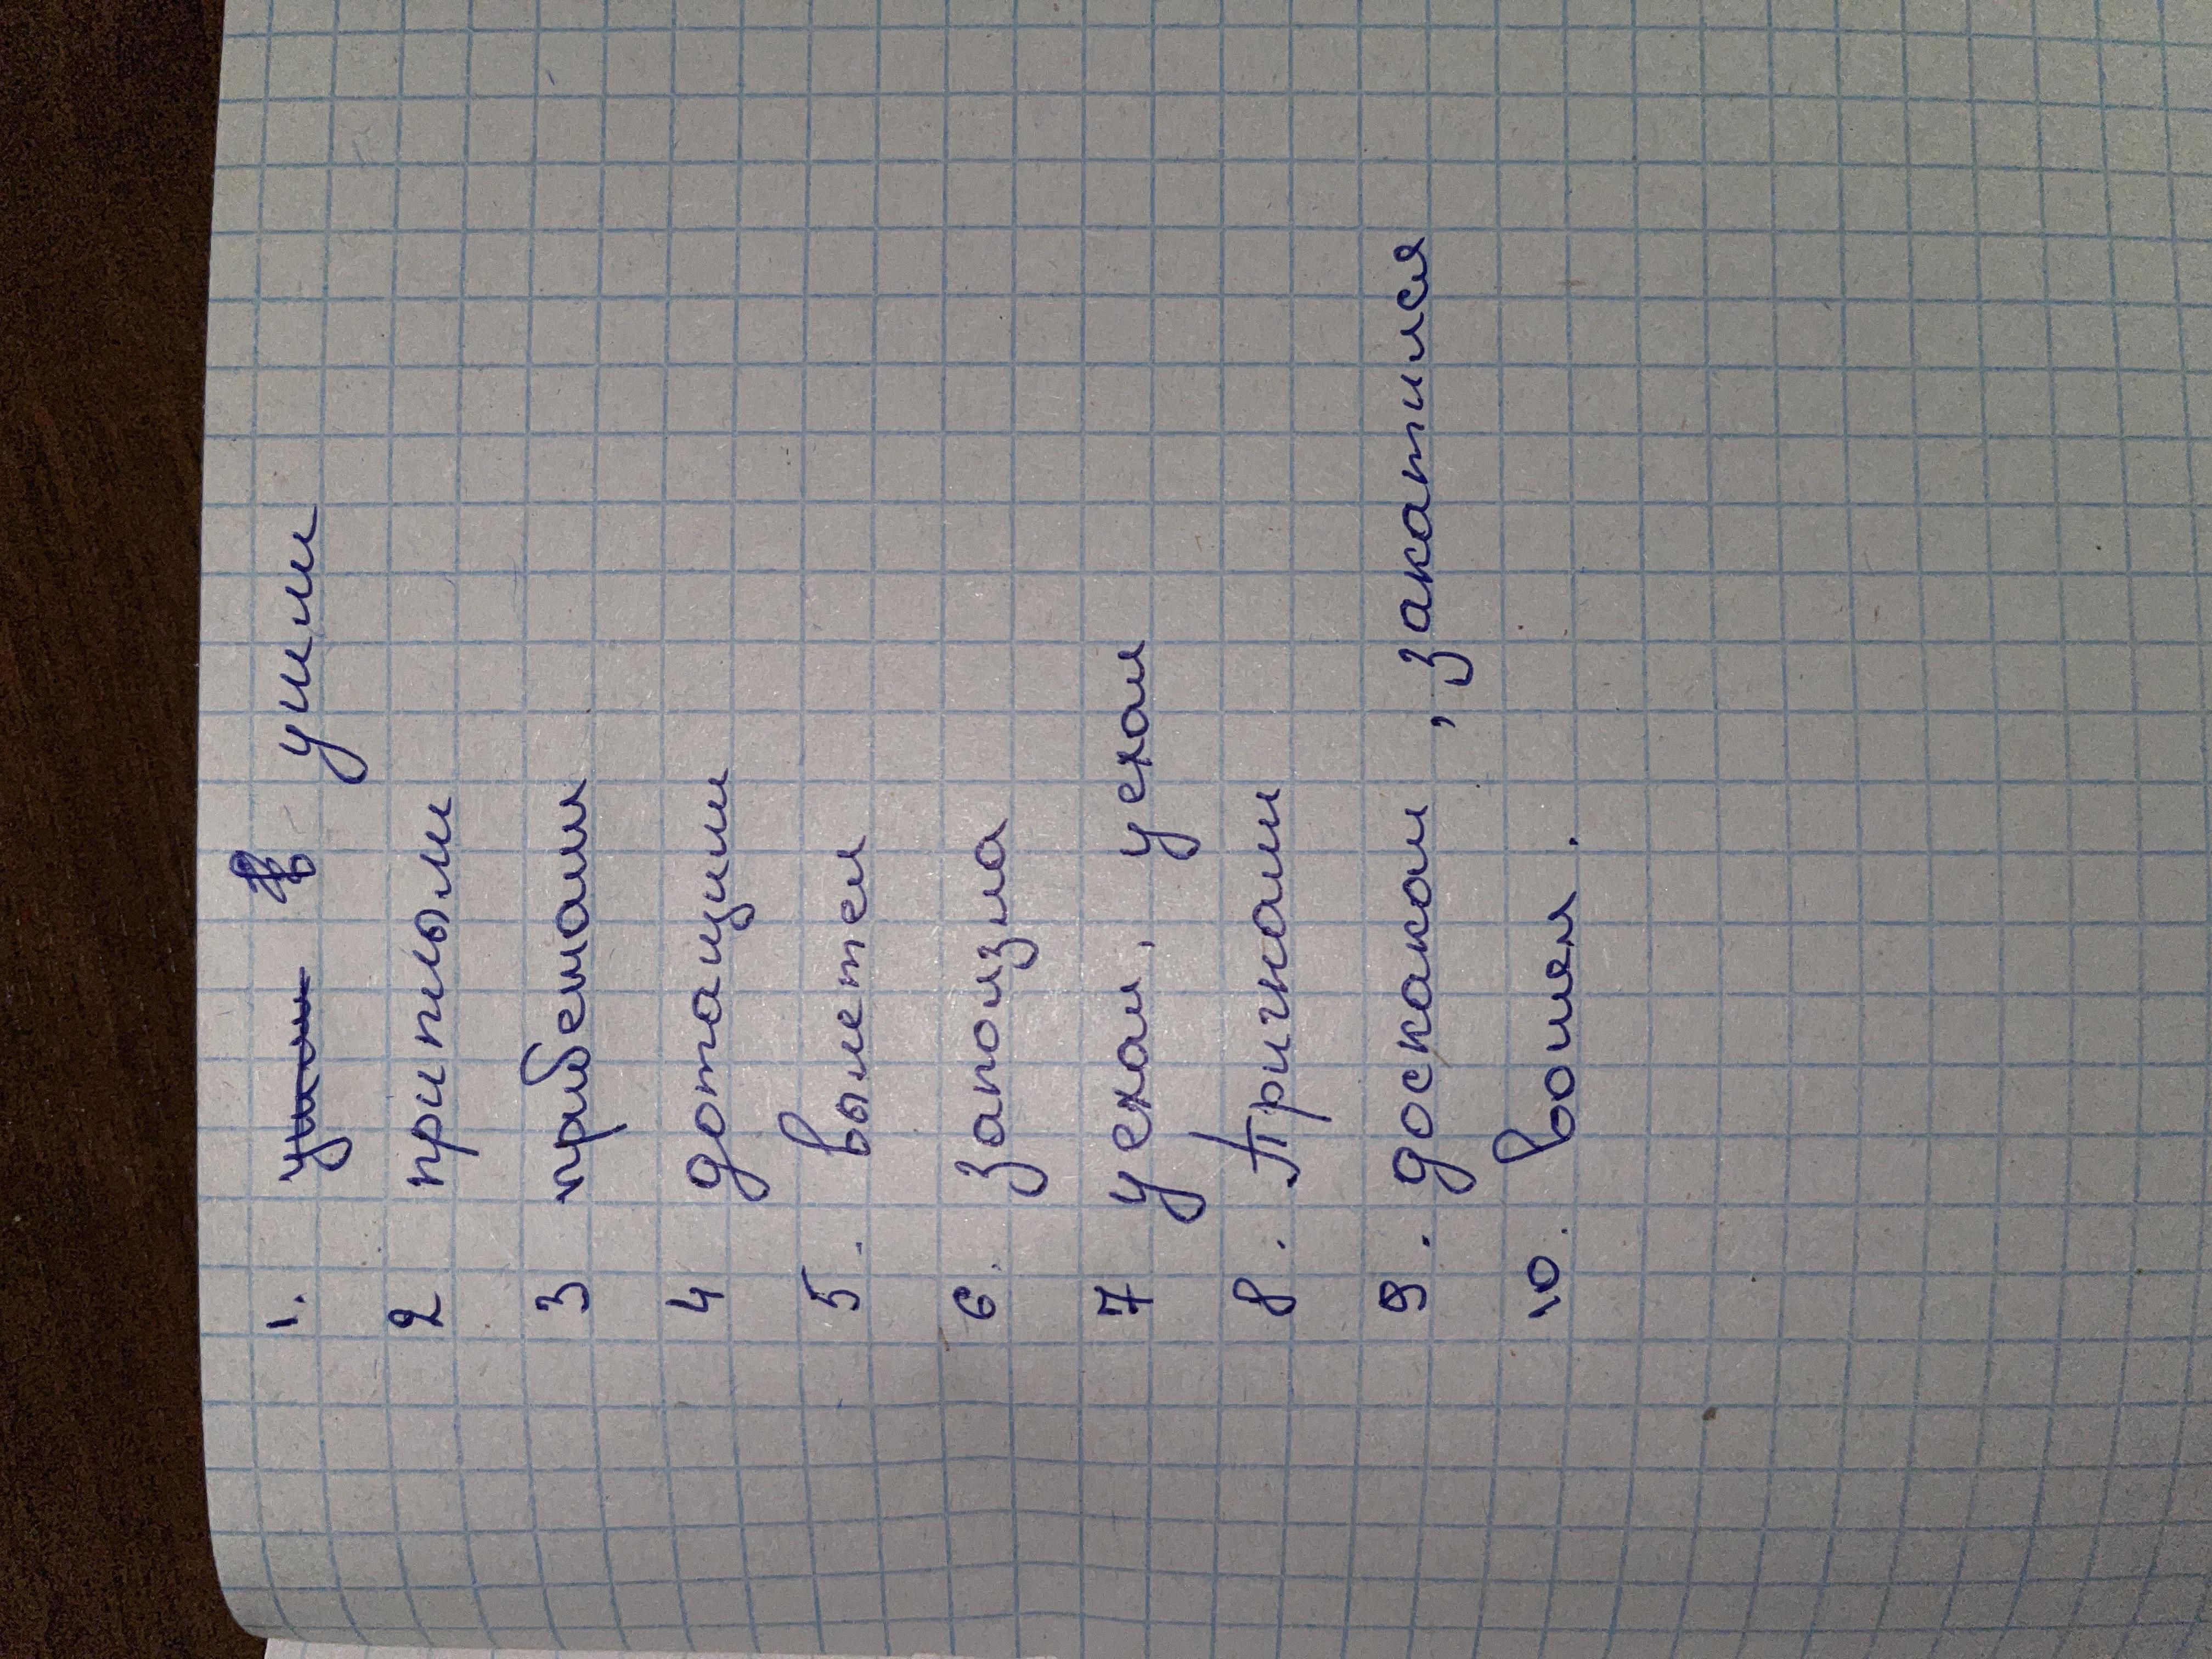 1. ушли ушли
2 приплыли
3 прибежали
4 дотащили
5. вылетел
6. заползла
7 уехал, уехал
8. Пригнали
9. доскакал, закатился
10. вошел.